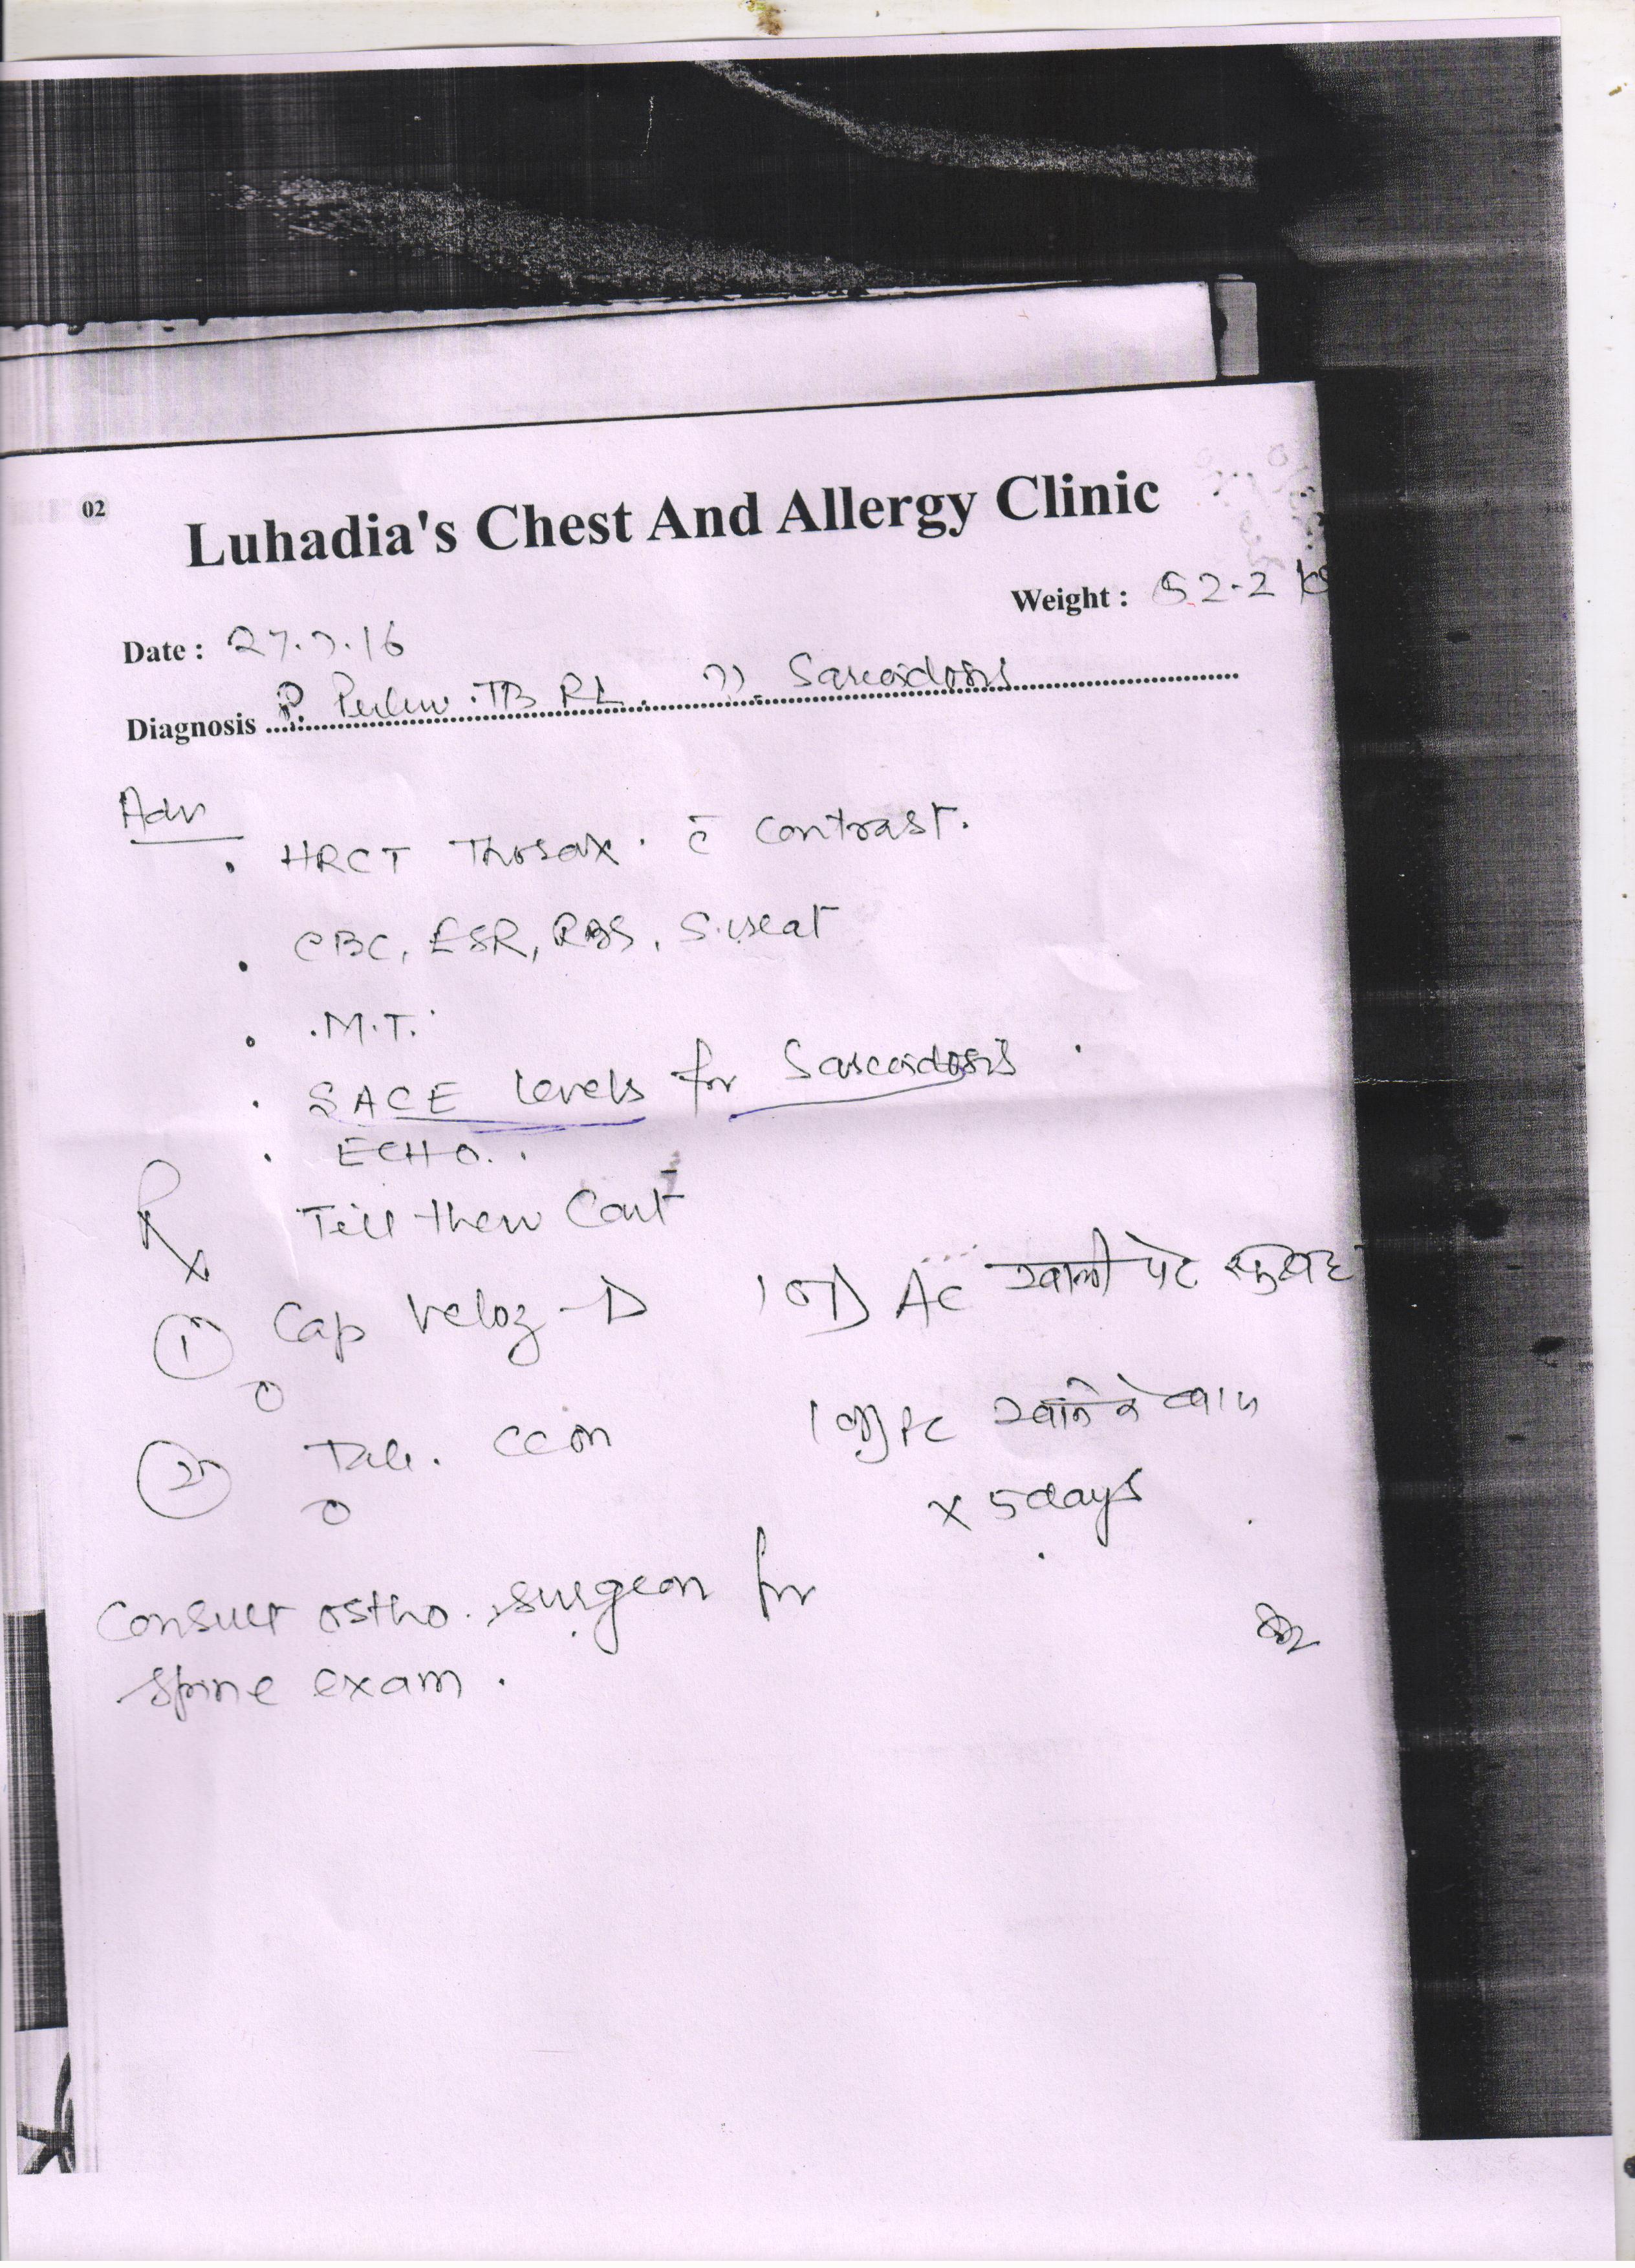 02
Luhadia's Chest And Allergy Clinic
Weight : 52.2 kg
Date : 27.7.16
Diagnosis ?. TB RL. ??. Sarcoidosis
Adv
. HRCT Thorax. c̄ contrast.
. CBC, ESR, RBS, S.ureat
. M.T.
. SACE levels for Sarcoidosis .
. ECHO.
Rx Till then Cont
① Cap Veloz-D 1 OD AC खाली पेट सुबह
② Tab. CCM 1 OD PC खाने के बाद
x 5 days
Consult ortho. surgeon for
spine exam.